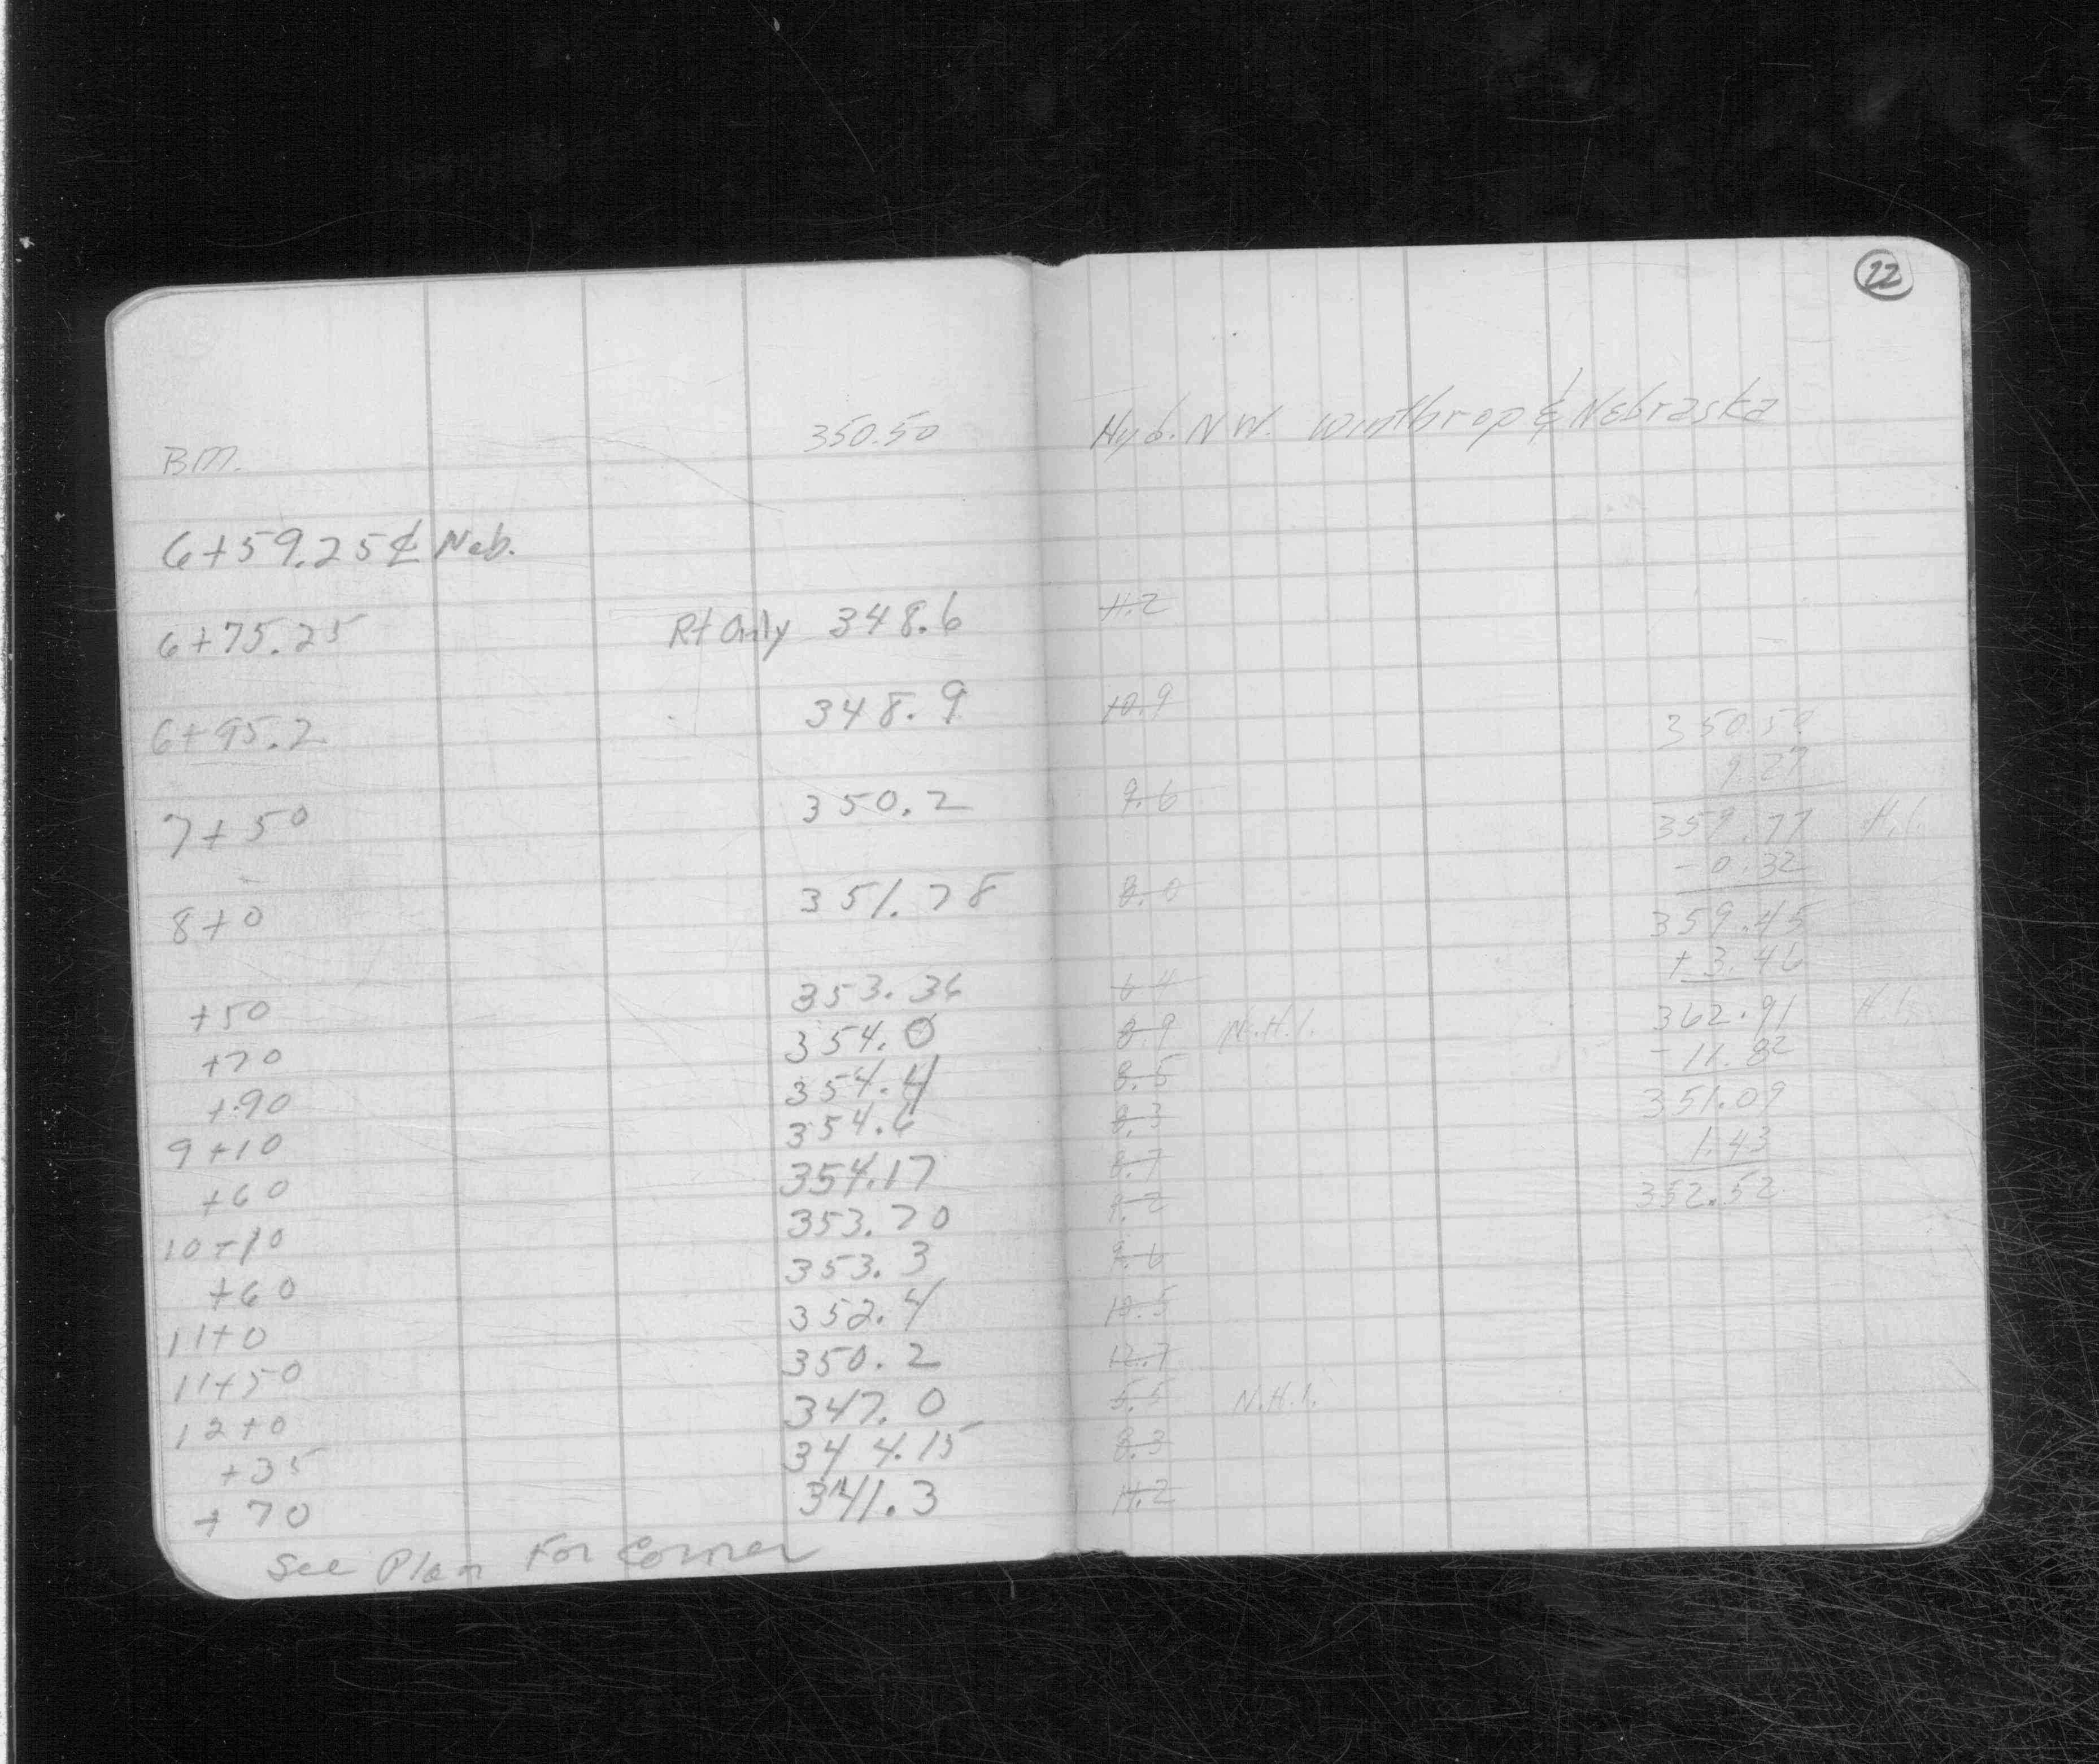 22
BM. 350.50 Hyd. N W. Winthrop & Nebraska
6+59.25 ℄ Neb.
6+75.25 Rt Only 348.6 11.2
6+95.2 348.9 10.9
350.50
9.27
7+50 350.2 9.6
359.77 H.I.
- 0.32
8+0 351.78 8.0
359.45
+ 3.46
+50 353.36 6.4
362.91 H.I.
+70 354.0 8.9 N.H.I.
- 11.82
+90 354.4 8.5
351.09
9+10 354.6 8.3
1.43
+60 354.17 8.7
352.52
10+10 353.70 9.2
+60 353.3 9.6
11+0 352.4 10.5
11+50 350.2 12.7
12+0 347.0 5.5 N.H.I.
+35 344.15 8.3
+70 341.3 11.2
See Plan For Corner